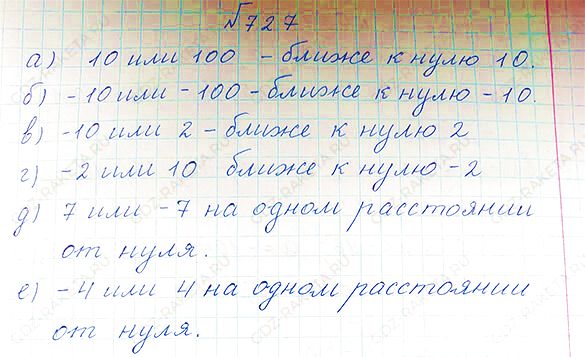 №727
а) 10 или 100 - ближе к нулю 10.
б) -10 или -100 - ближе к нулю -10.
в) -10 или 2 - ближе к нулю 2
г) -2 или 10 ближе к нулю -2
д) 7 или -7 на одном расстоянии
от нуля.
е) -4 или 4 на одном расстоянии
от нуля.